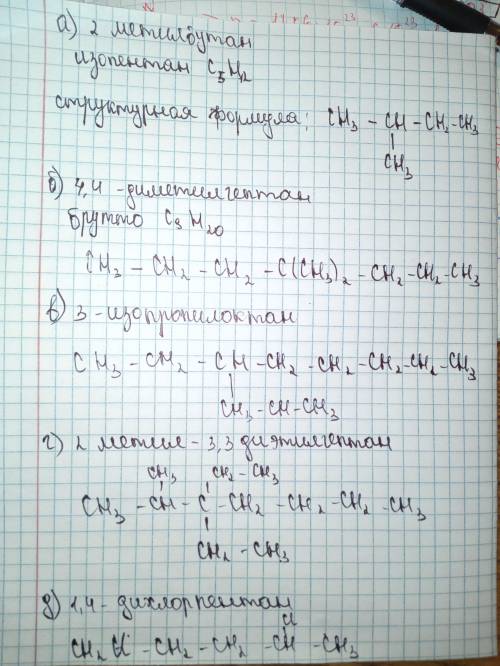 а) 2 метилбутан
изопентан C5H12
структурная формула: CH3 – CH – CH2 – CH3
CH3
б) 4,4 – диметилгептан
Брутто C9H20
CH3 – CH2 – CH2 – C(CH3)2 – CH2 – CH2 – CH3
в) 3 – изопропилоктан
CH3 – CH2 – CH – CH2 – CH2 – CH2 – CH2 – CH3
CH3 – CH – CH3
г) 2 метил – 3,3 диэтилгептан
CH3 CH2 – CH3
CH3 – CH – C – CH2 – CH2 – CH2 – CH3
CH2 – CH3
д) 1,4 – дихлорпентан
Cl
CH2Cl – CH2 – CH2 – CH – CH3